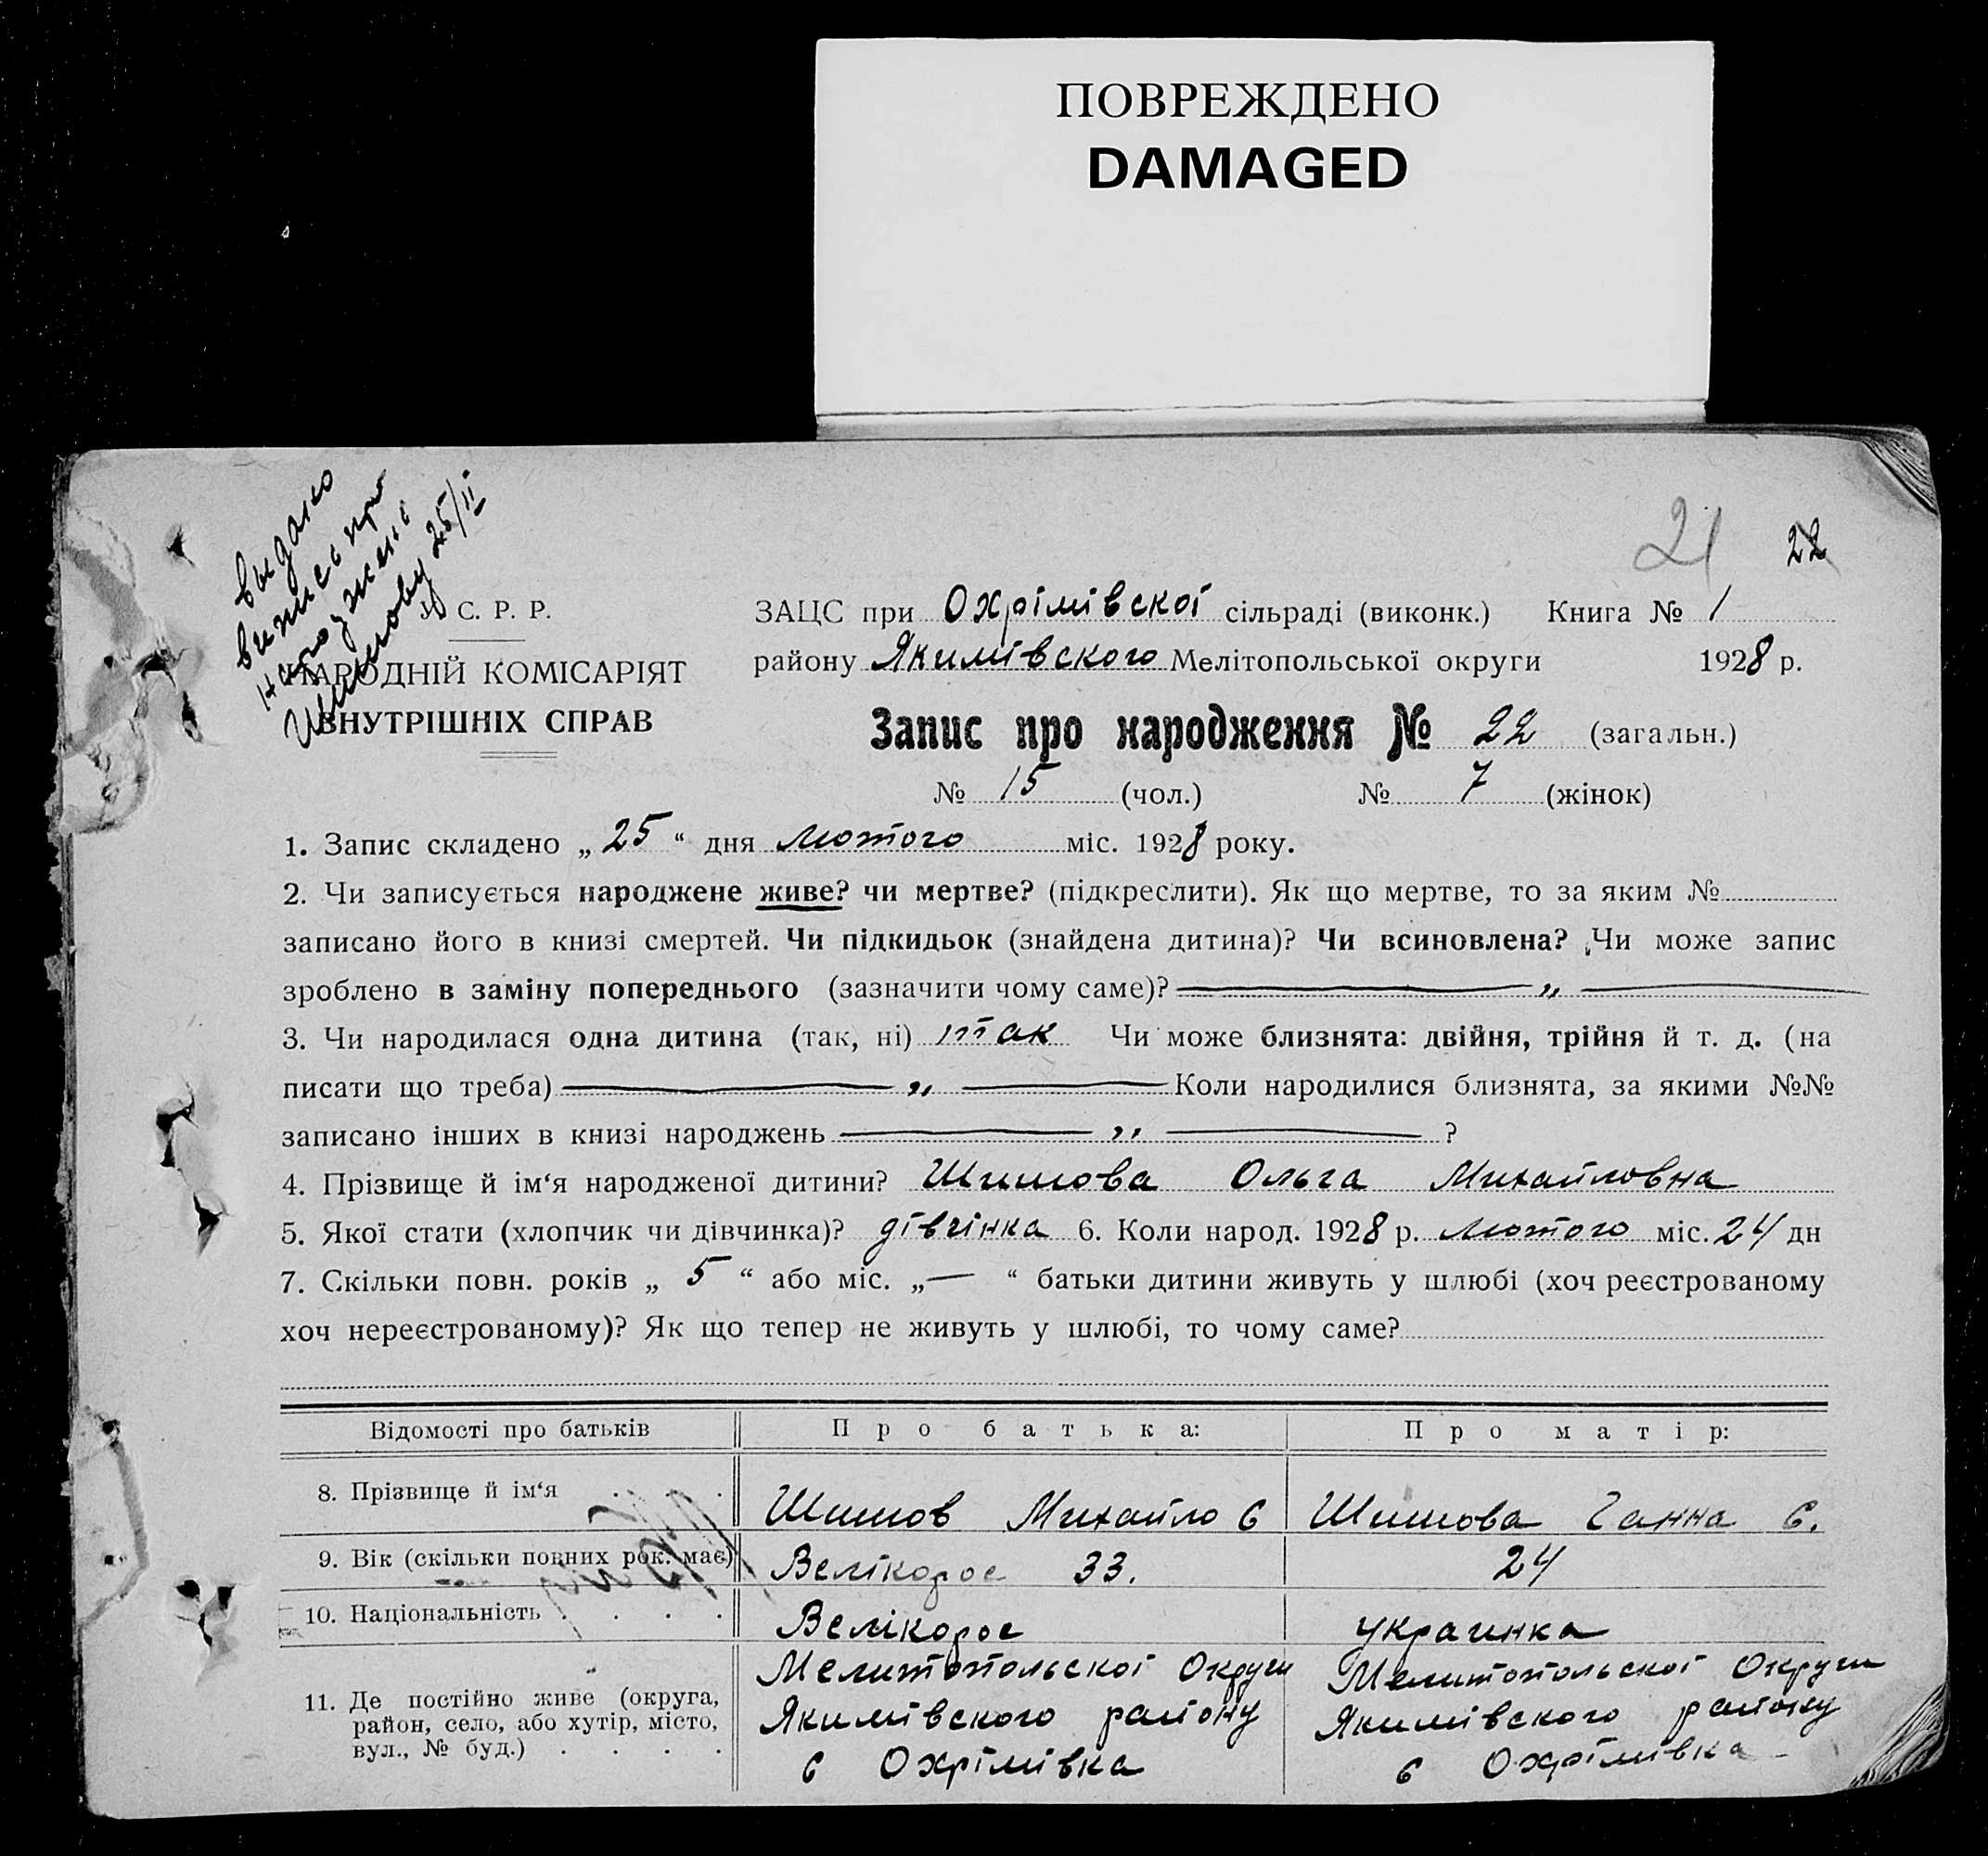 ПОВРЕЖДЕНО
DAMAGED
21 22
выдано
випись про
народженє
Шишову 25/II
У. С. Р. Р.
НАРОДНІЙ КОМІСАРІЯТ
ВНУТРІШНІХ СПРАВ
ЗАЦС при Охрімівскоі сільраді (виконк.) Книга № 1
району Якимівского Мелітопольської округи 1928 р.
Запис про народження № 22 (загальн.)
№ 15 (чол.) № 7 (жінок)
1. Запис складено „ 25 “ дня Лютого міс. 1928 року.
2. Чи записується народжене живе? чи мертве? (підкреслити). Як що мертве, то за яким №
записано його в книзі смертей. Чи підкидьок (знайдена дитина)? Чи всиновлена? Чи може запис
зроблено в заміну попереднього (зазначити чому саме)? — „ —
3. Чи народилася одна дитина (так, ні) так Чи може близнята: двійня, трійня й т. д. (на
писати що треба) — „ — Коли народилися близнята, за якими №№
записано інших в книзі народжень — „ — ?
4. Прізвище й ім‘я народженої дитини? Шишова Ольга Михайловна
5. Якої стати (хлопчик чи дівчинка)? дівчінка 6. Коли народ. 1928 р. Лютого міс. 24 дн
7. Скільки повн. років „ 5 “ або міс. „ — “ батьки дитини живуть у шлюбі (хоч реєстрованому
хоч нереєстрованому)? Як що тепер не живуть у шлюбі, то чому саме?
Відомості про батьків Про батька: Про матір:
8. Прізвище й ім‘я . . . Шишов Михайло С Шишова Ганна С.
9. Вік (скільки повних рок. має) Велікорос 33. 24
10. Національність . . . . Велікорос украинка
11. Де постійно живе (округа,
район, село, або хутір, місто,
вул., № буд.) . . . .
Мелитопольскоі Округи
Якимівского району
с Охрімівка
Мелитопольскоі Округи
Якимівского району
с Охрімівка